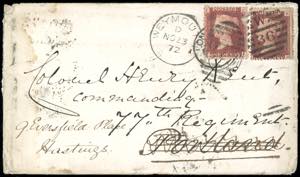 WEYMOU
D
NO 23
72
Colonel Henry Kent,
Commanding
9 Eversfield Place 77th Regiment
Hastings. Portland